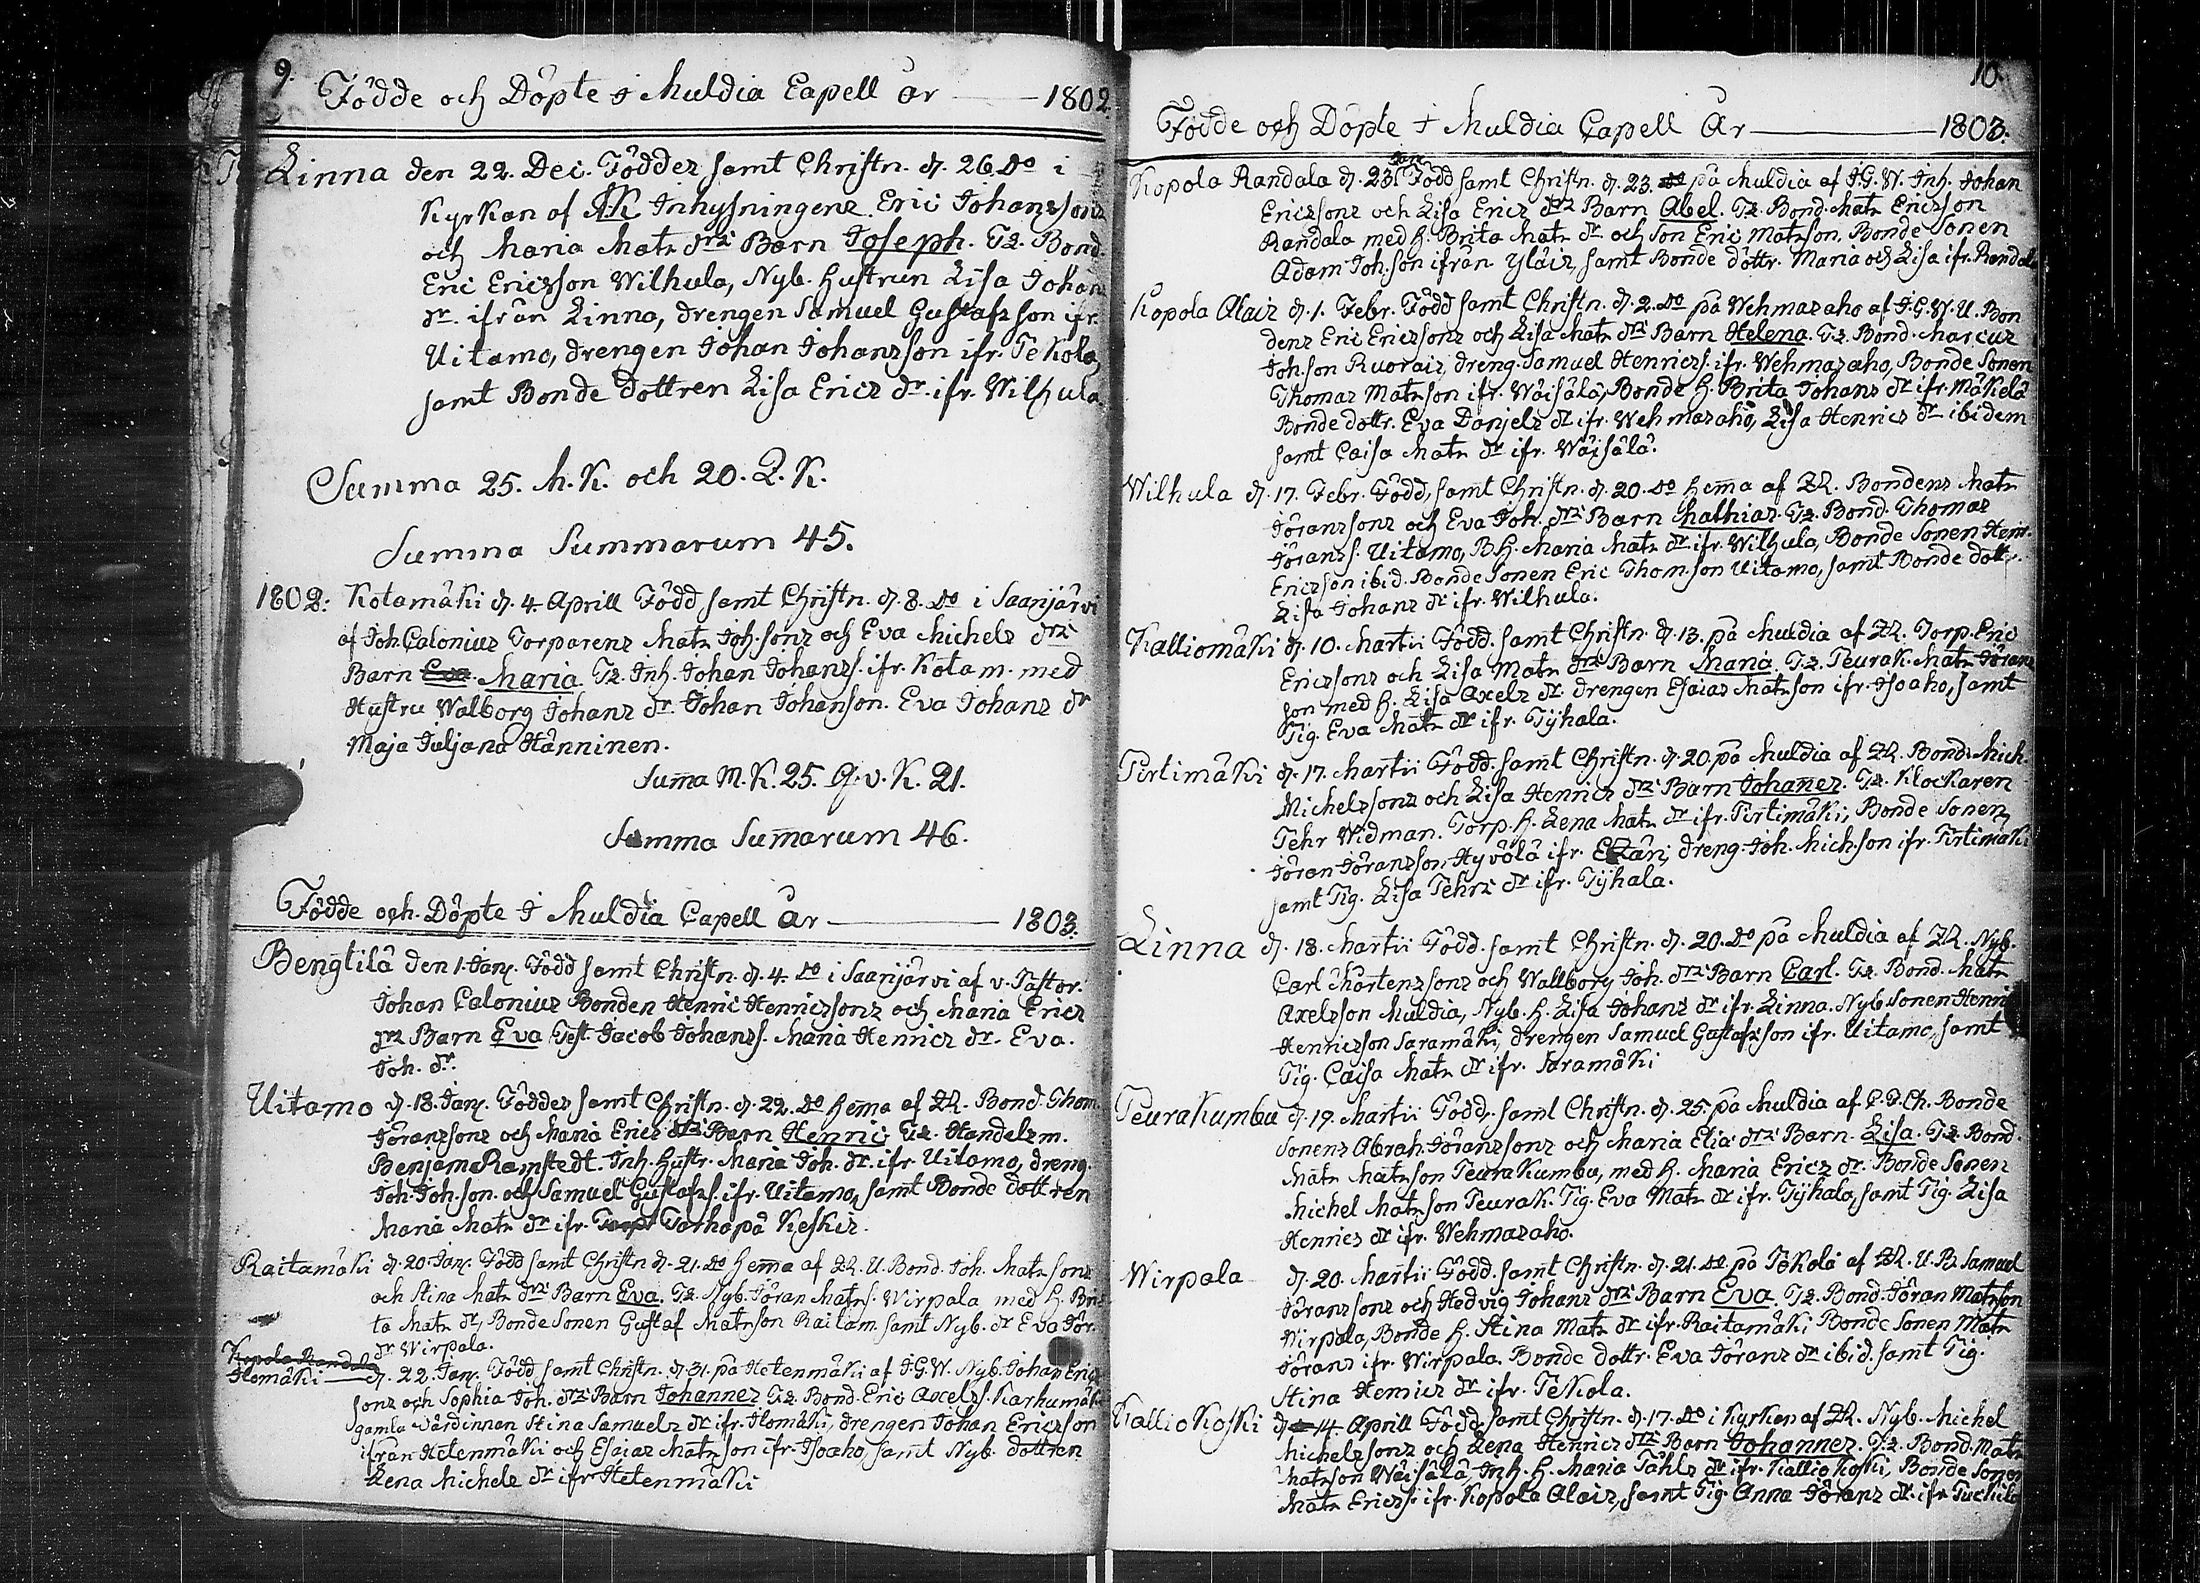 9.
Födde och Döpte i Muldia Capell år — 1802.
Linna den 22. Dec. Föddes samt Christn. d. 26 do i
Kyrkan af Inhysningens Eric Johanssons
och Maria Mats drs Barn Joseph. Ts. Bond.
Eric Ericsson Wilhula, Nyb. Hustrun Lisa Johans
dr. ifrån Linna, drengen Samuel Gustafsson ifr.
Uitamo, drengen Johan Johansson ifr. Pekola,
samt Bonde Dottren Lisa Erics dr. ifr. Wilhula.
Summa 25. M.K. och 20. Q.K.
Summa Summarum 45.
1802: Kotamäki d. 4. Aprill Född samt Christn. d. 8. do i Saarijärvi
af Joh. Calonius Torparens Mats Joh.sons och Eva Michels drs
Barn Eva Maria. Ts. Inh. Johan Johanss. ifr. Kotam. med
Hustru Walborg Johans dr. Johan Johanson. Eva Johans dr
Maja Juljana Hänninen.
Suma M.K. 25. Q.v.K. 21.
Summa Sumarum 46.
Födde och Döpte i Muldia Capell år — 1803.
Bengtilä den 1. Janr. Född samt Christn. d. 4. do i Saarijärvi af v. Pastor.
Johan Calonius Bonden Henric Henricssons och Maria Erics
drs Barn Eva Test. Jacob Johanss. Maria Henrics dr. Eva.
Joh. dr.
Uitamo d. 18. Janr. Föddes samt Christn. d. 22. do hema af Bond. Thom.
Göranssons och Maria Erics drs Barn Henric Ts. Handelsm.
Benjam Ramstedt. Inh. Hustr. Maria Joh. dr. ifr. Uitamo, dreng.
Joh. Joh.son. och Samuel Gustafss. ifr. Uitamo, samt Bonde dottren
Maria Mats dr ifr. Torhopå Keskis.
Raitamäki d. 20. Janr. Född samt Christn d. 21. do hema af U. Bond. Joh. Mats sons
och Stina Mats drs Barn Eva. Ts. Nyb. Göran Matss. Wirpala med h. Bri
ta Mats dr, Bonde Sonen Gustaf Matsson Raitam. samt Nyb. dr Eva Gör.
dr Wirpala.
Kopola Randala
Ilomäki — d. 22. Janr. Född samt Christn. d. 31. på Hetenmäki af J.G.W. Nyb. Johan Erics
sons och Sophia Joh. drs Barn Johannes Ts. Bond. Eric Axelss. Karhumäki
gamla värdinnan Stina Samuels dr ifr. Ilomäki, drengen Johan Ericsson
ifrån Hetenmäki och Esaias Matsson ifr. Isoaho, samt Nyb. dottren
Lena Michels dr ifr Hetenmäki
10.
Födde och Döpte i Muldia Capell År — 1803.
Kopola Randala d. 23. Jan Född samt Christn. d. 23. do på Muldia af J.G.W. Inh. Johan
Ericssons och Lisa Erics drs Barn Abel. Ts. Bond. Mats Ericson
Randala med h. Brita Mats dr och Son Eric Matsson, Bonde Sonen
Adam Joh.son ifrån Yläis, samt Bonde döttr. Maria och Lisa ifr. Randala
Kopola Alais d. 1. Febr. Född samt Christn. d. 2. do på Wehmasaho af J.G.W. U. Bon
dens Eric Ericssons och Lisa Mats drs Barn Helena. Ts. Bond. Marcus
Joh.son Ruorais, dreng. Samuel Henricss. ifr. Wehmasaho, Bonde Sonen
Thomas Matsson ifr. Wäisälä, Bonde h. Brita Johans dr ifr. Mäkelä
Bonde dottr. Eva Danjels dr ifr. Wehmasaho, Lisa Henrics dr ibidem
samt Caisa Mats dr ifr. Wäisälä.
Wilhula d. 17. Febr. Född, samt Christn. d. 20. do hema af Bondens Mats
Göranssons och Eva Joh. drs Barn Mathias. Ts. Bond. Thomas
Görans. Uitamo, B.h. Maria Mats dr ifr. Wilhula, Bonde Sonen Henr.
Ericsson ibid. Bonde Sonen Eric Thom.son Uitamo, samt Bonde dott.
Lisa Johans dr ifr. Wilhula.
Kalliomäki d. 10. Martii Född. samt Christn. d. 13. på Muldia af Torp. Eric
Ericssons och Lisa Mats drs Barn Maria. Ts. Peurak. Mats Görans
son med h. Lisa Axels dr. drengen Esaias Matsson ifr. Isoaho, samt
Pig. Eva Mats dr ifr. Pyhala.
Pirtimäki d. 17. Martii Född. samt Christn. d. 20. på Muldia af Bond. Mich.
Michelssons och Lisa Henrics drs Barn Johannes. Ts. Klockaren
Pehr Widman. Torp. h. Lena Mats dr ifr. Pirtimäki, Bonde Sonen
Göran Göransson Hyvölä ifr. dreng. Joh. Mich.son ifr. Pirtimäki
samt Pig. Lisa Pehrs dr ifr. Pyhala.
Linna d. 18. Martii Född. samt Christn. d. 20. do på Muldia af Nyb.
Carl Mårtenssons och Wallborg Joh. drs Barn Carl. Ts. Bond. Mats
Axelsson Muldia, Nyb. h. Lisa Johans dr ifr. Linna. Nyb. Sonen Henric
Henricsson Saramäki, drengen Samuel Gustafsson ifr. Uitamo, samt
Pig. Caisa Mats dr ifr. Saramäki
Peurakumbu d. 19. Martii Född. samt Christn. d. 25. på Muldia af P.P.Ch. Bonde
Sonens Abrah. Göranssons och Maria Elia drs Barn. Lisa. Ts. Bond.
Mats Matsson Peurakumbu, med h. Maria Erics dr. Bonde Sonen
Michel Matsson Peurak. Pig. Eva Mats dr ifr. Pyhala, samt Pig. Lisa
Henrics dr ifr. Wehmasaho.
Wirpala d. 20. Martii Född. samt Christn. d. 21. do på Pekola af U.B. Samuel
Göranssons och Hedvig Johans drs Barn Eva. Ts. Bond. Göran Matsson
Wirpala, Bonde h. Stina Mats dr ifr. Raitamäki Bonde Sonen Mats
Görans ifr. Wirpala. Bonde dottr. Eva Görans dr ibid. samt Pig.
Stina Henrics dr ifr. Pekola.
Kalliokoski d. 14. Aprill Född samt Christn. d. 17. do i Kyrkan af Nyb. Michel
Michelssons och Lena Henrics drs Barn Johannes. Ts. Bond. Mats
Matsson Wäisälä, Inh. h. Maria Påhls dr ifr. Kalliokoski, Bonde Sonen
Mats Ericss. ifr. Kopola Alais, samt Pig. Anna Görans dr. ifr.